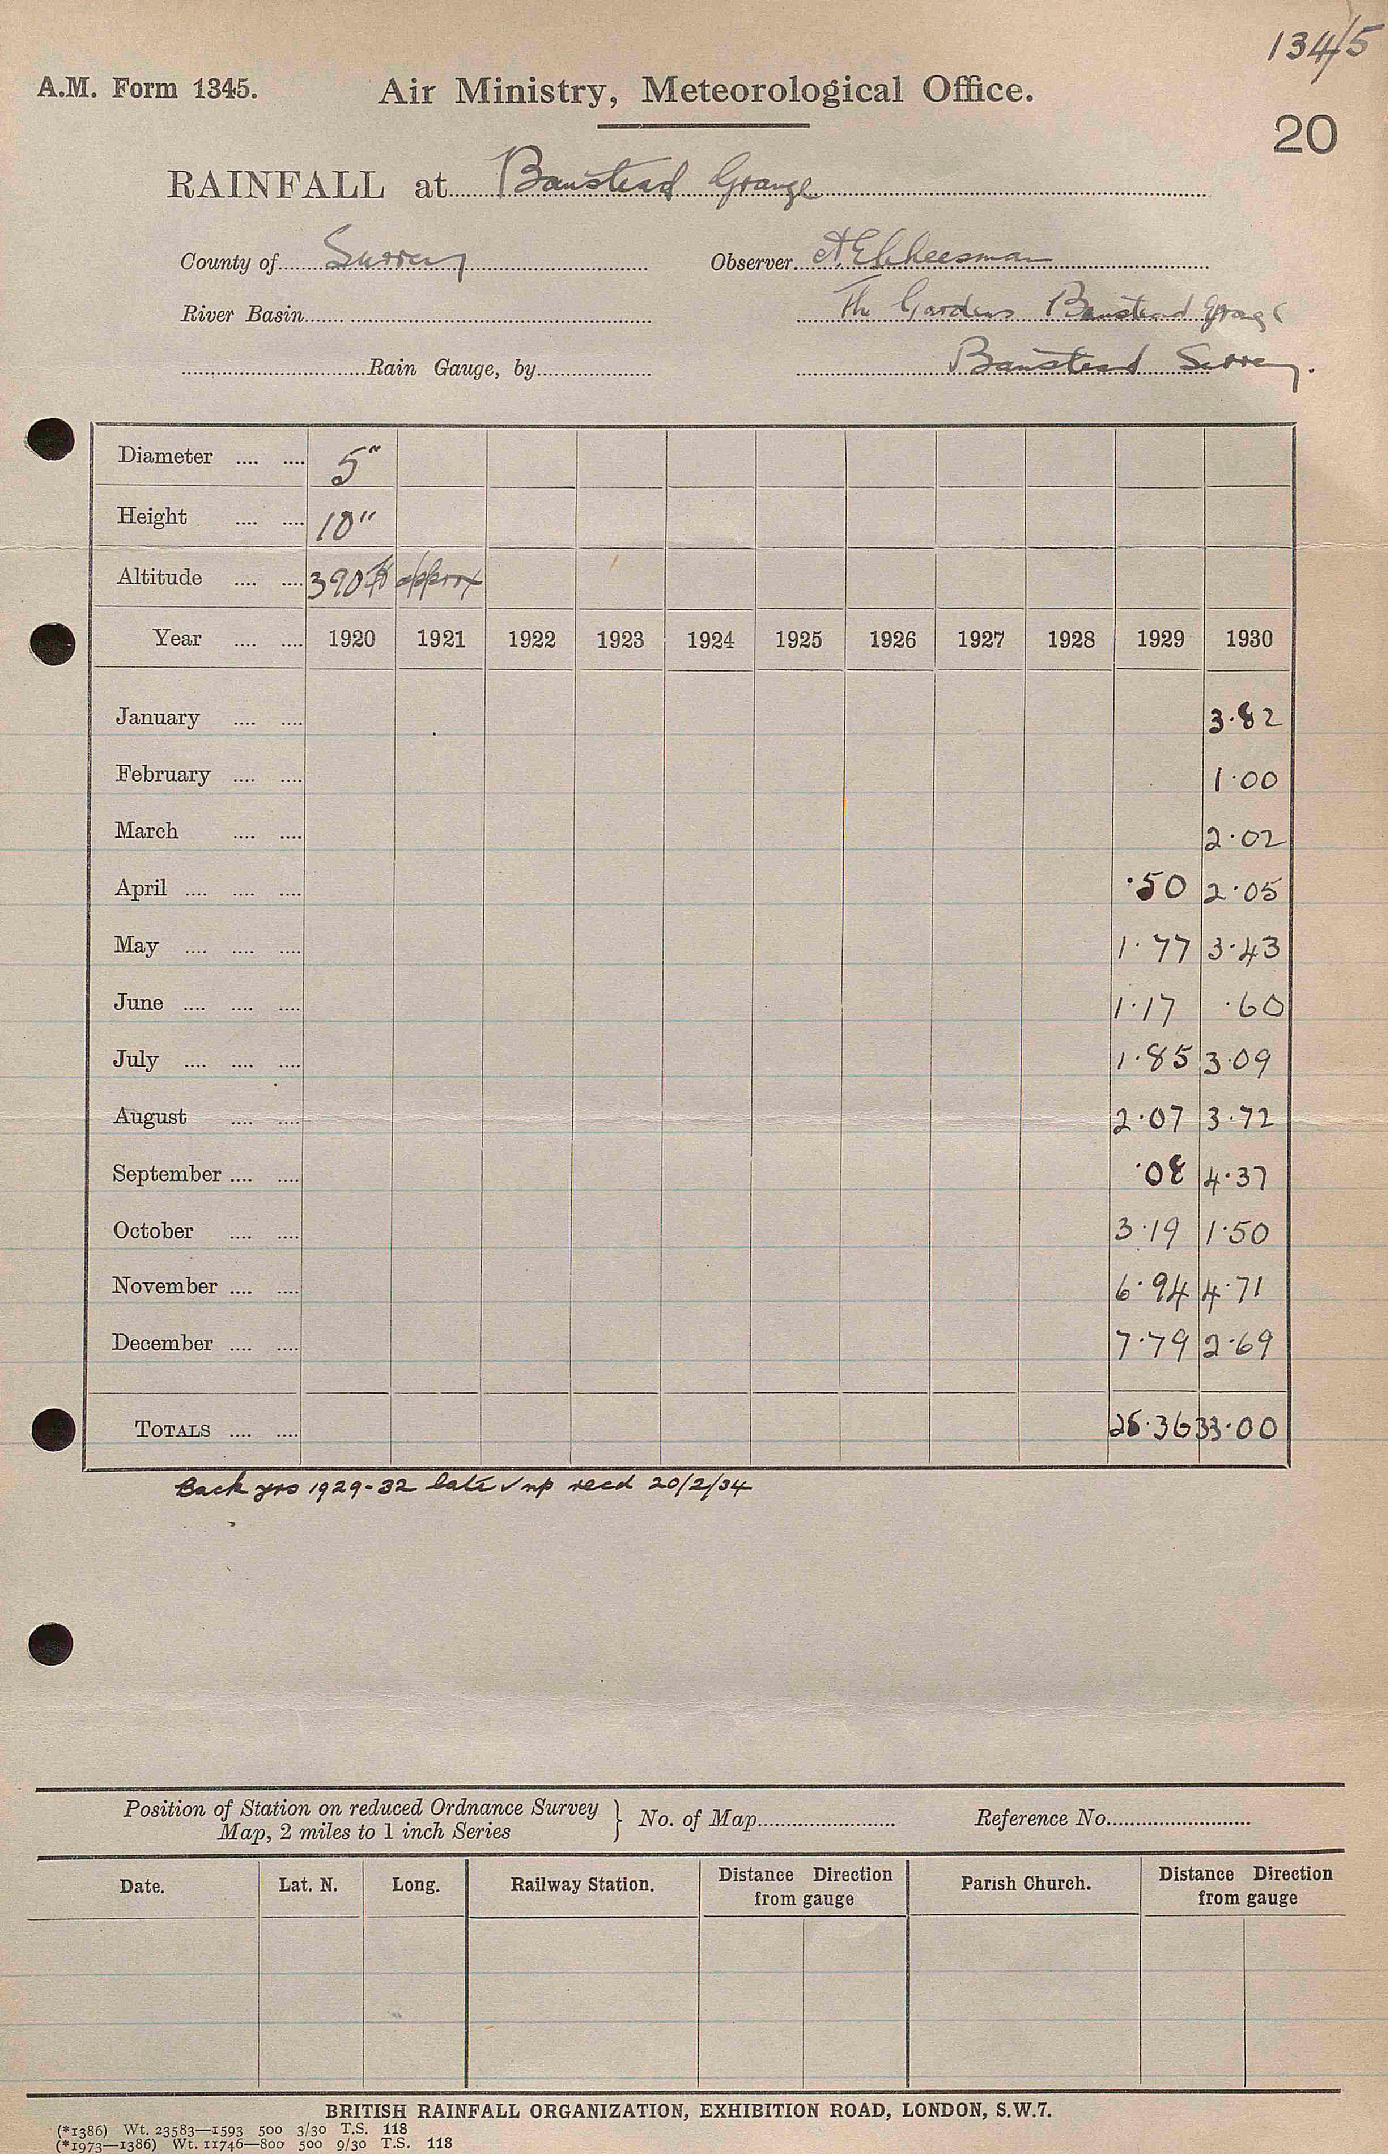 134/5
A.M. Form 1345. Air Ministry, Meteorological Office.
20
RAINFALL at Banstead Grange
County of Surrey Observer A E Cheesman
River Basin The Gardens Banstead Grange
Rain Gauge, by Banstead Surrey.
Diameter 5"
Height 10"
Altitude 390 ft approx
Year 1920 1921 1922 1923 1924 1925 1926 1927 1928 1929 1930
January 3.82
February 1.00
March 2.02
April .50 2.05
May 1.77 3.43
June 1.17 .60
July 1.85 3.09
August 2.07 3.72
September .08 4.37
October 3.19 1.50
November 6.94 4.71
December 7.79 2.69
TOTALS 25.36 33.00
Back yrs 1929-32 late recd 20/2/34
Position of Station on reduced Ordnance Survey
Map, 2 miles to 1 inch Series } No. of Map Reference No.
Date. Lat. N. Long. Railway Station. Distance Direction from gauge Parish Church. Distance Direction from gauge
BRITISH RAINFALL ORGANIZATION, EXHIBITION ROAD, LONDON, S.W.7.
(*1386) Wt. 23583—1593 500 3/30 T.S. 118
(*1973—1386) Wt. 11746—800 500 9/30 T.S. 118